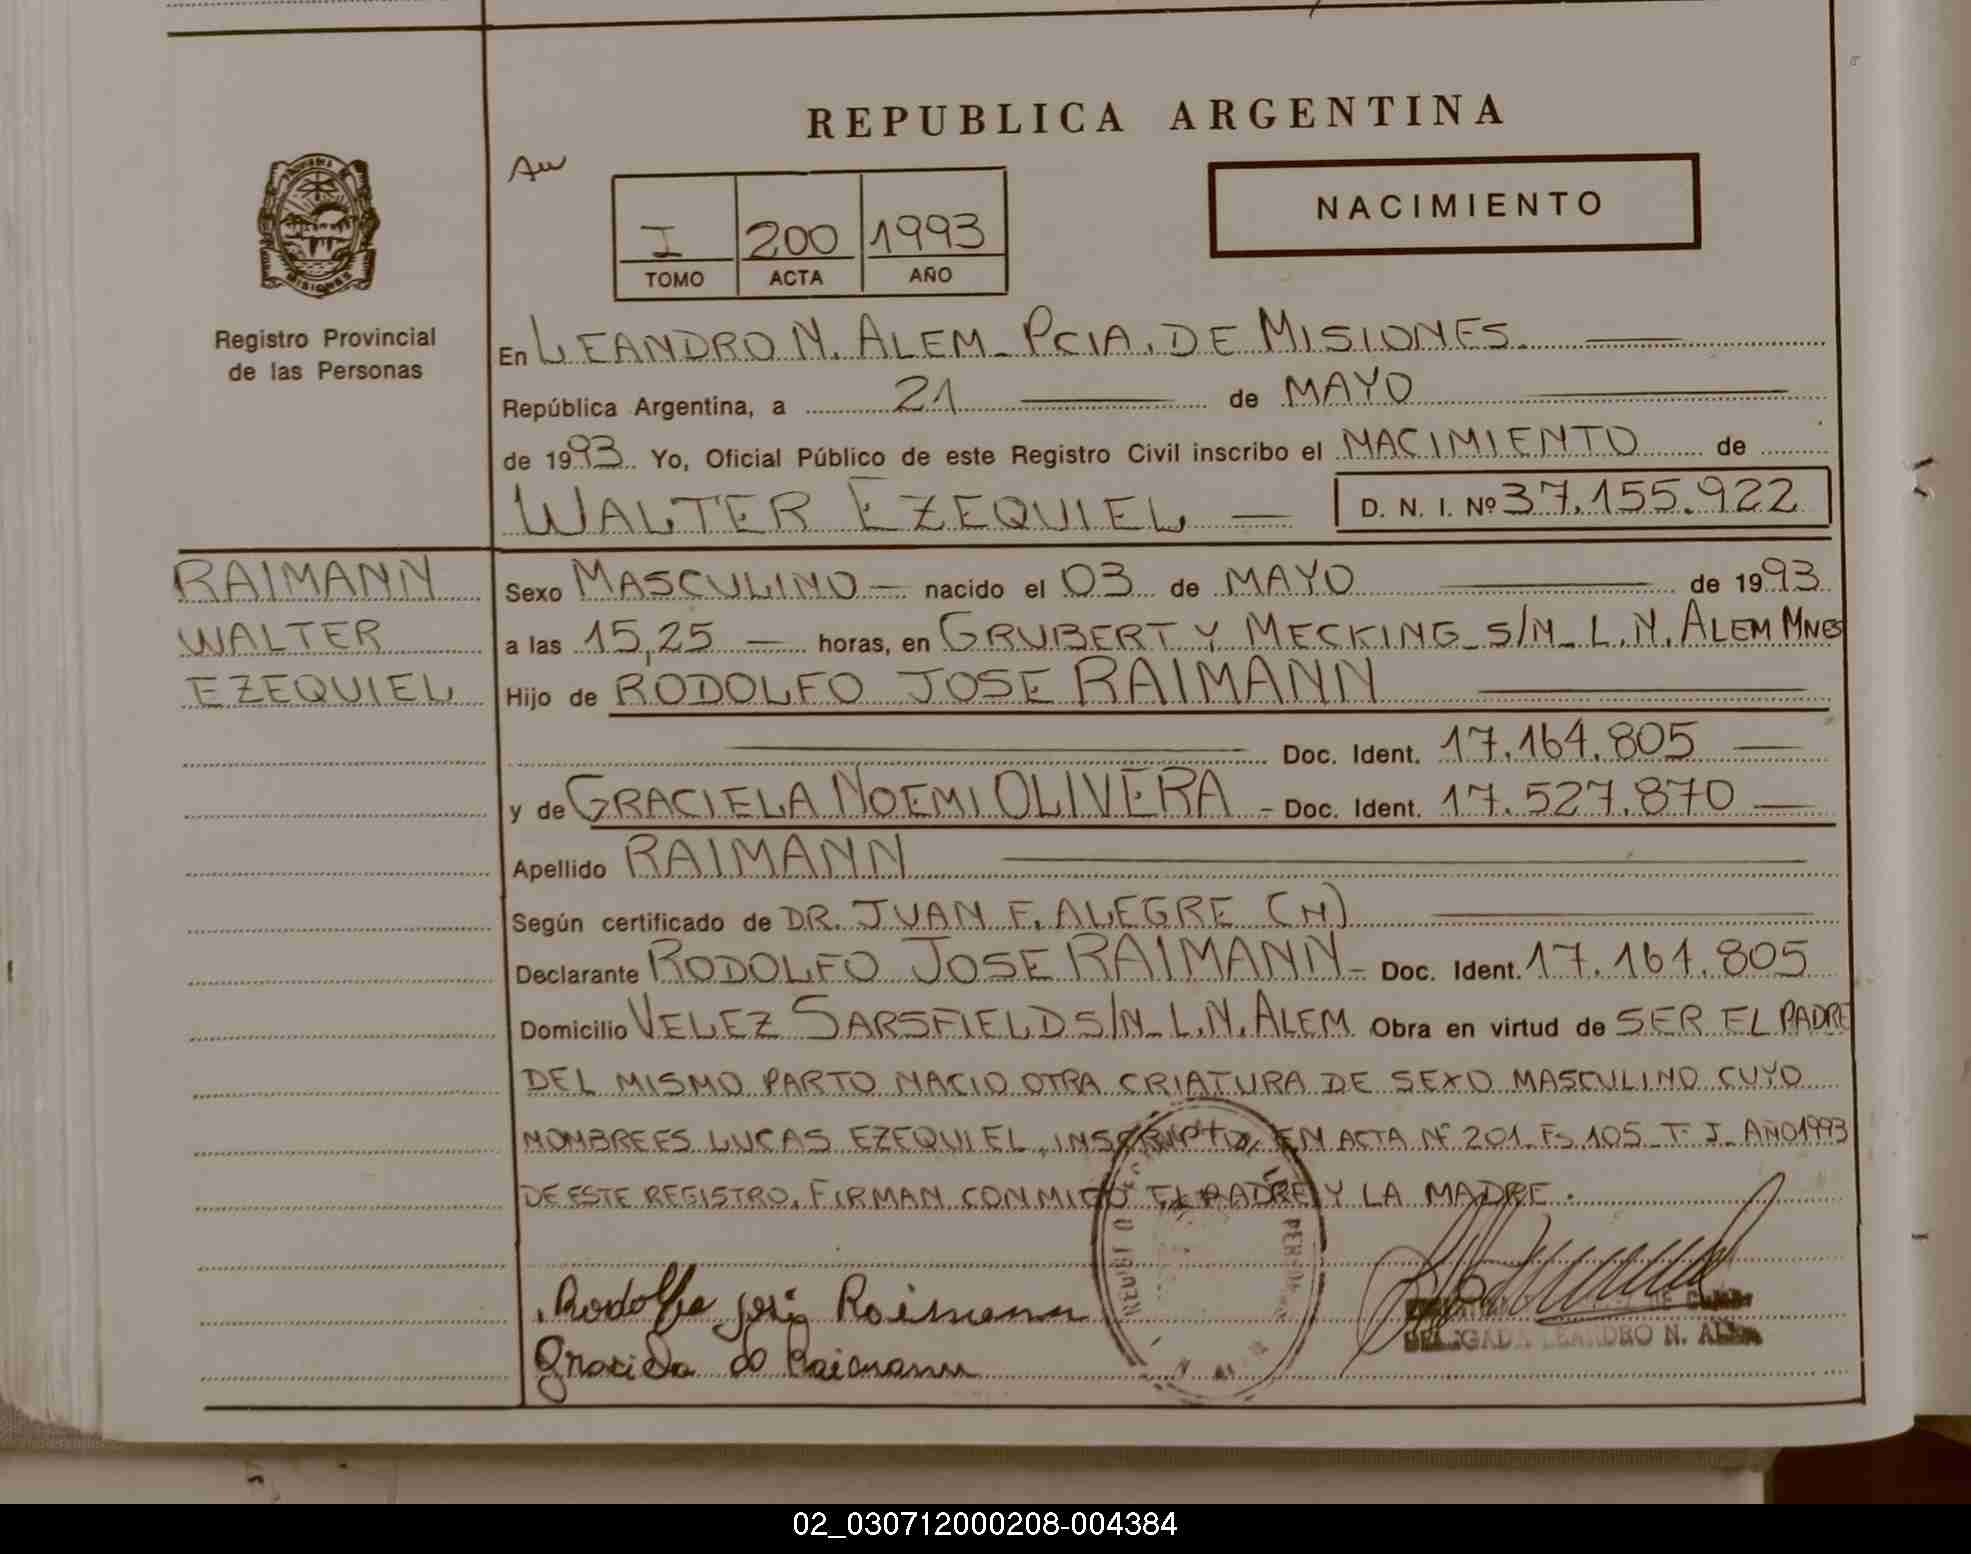 REPUBLICA ARGENTINA
NACIMIENTO
I 200 1993
TOMO ACTA AÑO
Registro Provincial
de las Personas
En LEANDRO N. ALEM - PCIA. DE MISIONES.
República Argentina, a 21 de MAYO
de 1993. Yo, Oficial Público de este Registro Civil inscribo el NACIMIENTO de
WALTER EZEQUIEL — D. N. I. Nº 37.155.922
RAIMANN
WALTER
EZEQUIEL
Sexo MASCULINO — nacido el 03 de MAYO de 1993
a las 15,25 — horas, en GRUBERT Y MECKING - S/N - L. N. ALEM MNES
Hijo de RODOLFO JOSE RAIMANN
Doc. Ident. 17.164.805
y de GRACIELA NOEMI OLIVERA - Doc. Ident. 17.527.870
Apellido RAIMANN
Según certificado de DR. JUAN F. ALEGRE (N)
Declarante RODOLFO JOSE RAIMANN - Doc. Ident. 17.164.805
Domicilio VELEZ SARSFIELD S/N - L. N. ALEM Obra en virtud de SER EL PADRE
DEL MISMO PARTO NACIO OTRA CRIATURA DE SEXO MASCULINO CUYO
NOMBRE ES LUCAS EZEQUIEL, INSCRIPTO, EN ACTA Nº 201 - Fs. 105 - T. I - AÑO 1993
DE ESTE REGISTRO. FIRMAN CONMIGO EL PADRE Y LA MADRE.
Rodolfo José Raimann
Graciela do Raimann
DELEGADA LEANDRO N. ALEM
02_030712000208-004384